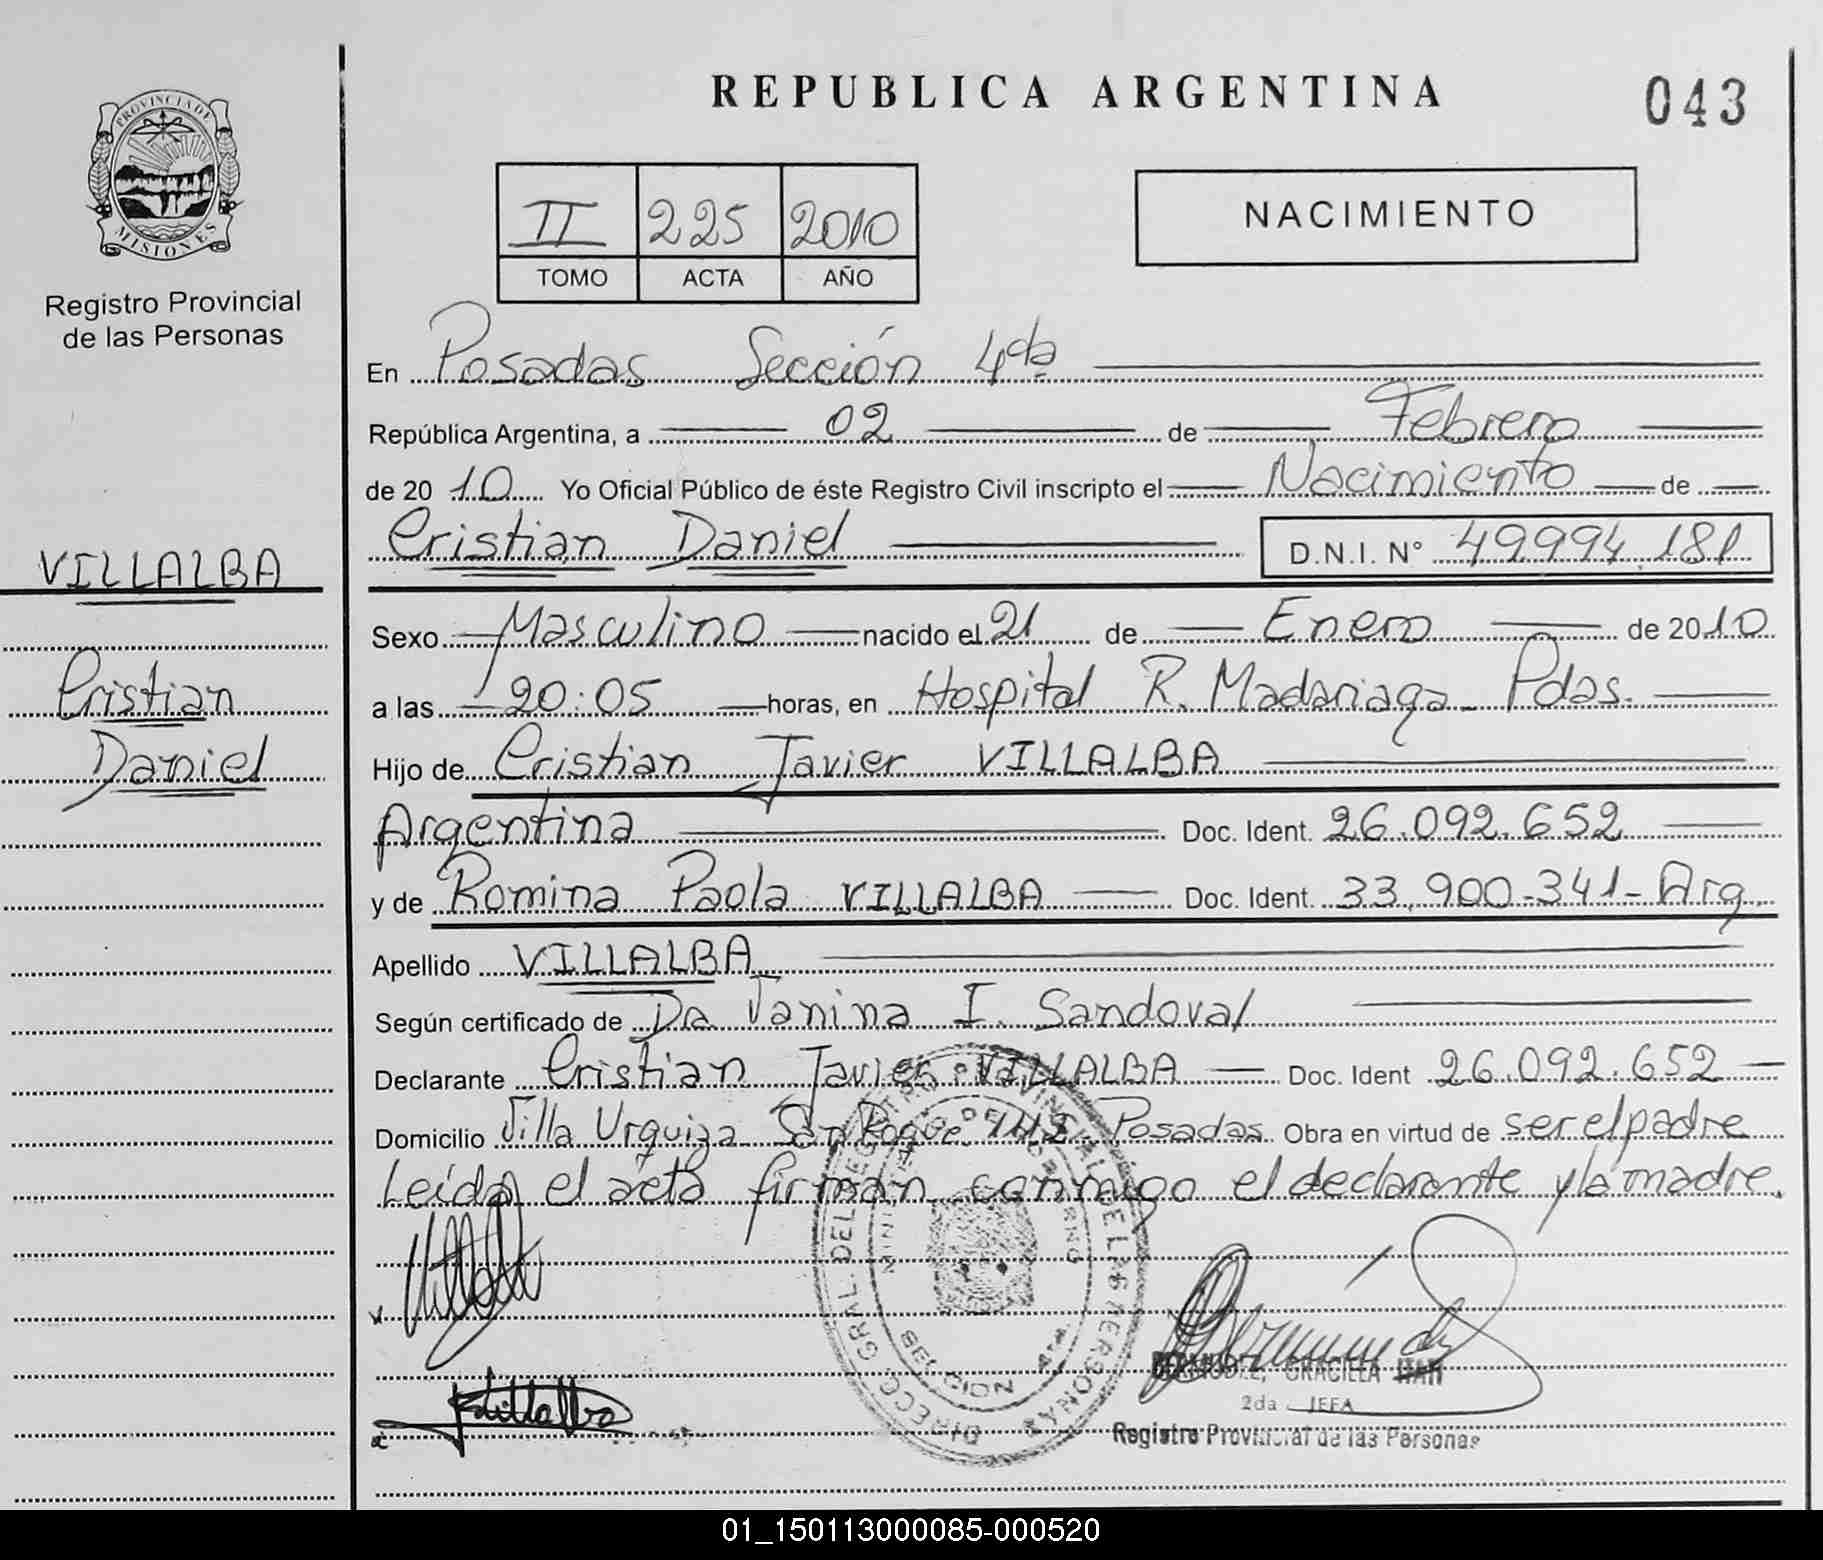 PROVINCIA DE
MISIONES
Registro Provincial
de las Personas
VILLALBA
Cristian
Daniel
REPUBLICA ARGENTINA
043
II 225 2010
TOMO ACTA AÑO
NACIMIENTO
En Posadas Sección 4da
República Argentina, a 02 de Febrero
de 2010 Yo Oficial Público de éste Registro Civil inscripto el Nacimiento de
Cristian Daniel D.N.I. N° 49994.181
Sexo Masculino nacido el 21 de Enero de 2010
a las 20:05 horas, en Hospital R. Madariaga - Pdas.
Hijo de Cristian Javier VILLALBA
Argentina Doc. Ident. 26.092.652
y de Romina Paola VILLALBA Doc. Ident. 33.900.341 - Arg.
Apellido VILLALBA
Según certificado de Dra Janina I. Sandoval
Declarante Cristian Javier VILLALBA Doc. Ident 26.092.652
Domicilio Villa Urquiza San Roque Posadas Obra en virtud de ser el padre
Leída el acta firman conmigo el declarante y la madre.
DIRECC. GRAL. DEL REGISTRO PROVINCIAL DE LAS PERSONAS
MINISTERIO DE GOBIERNO
SECCION 4ta
BERMUDEZ, GRACIELA
2da JEFA
Registro Provincial de las Personas
01_150113000085-000520